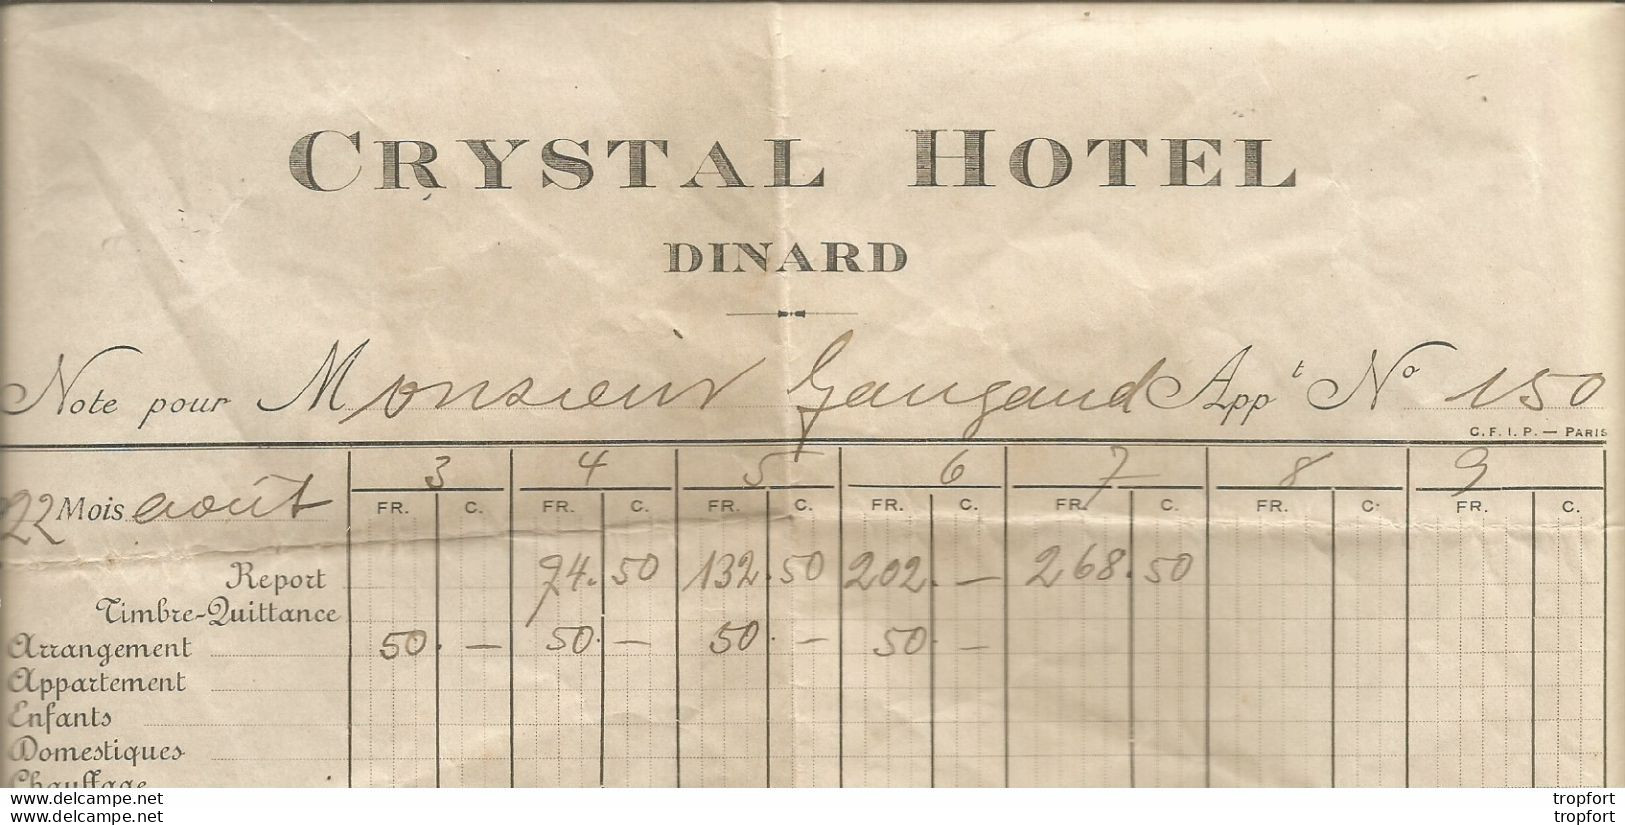 CRYSTAL HOTEL
DINARD
Note pour Monsieur Gaugaud Appt No 150
C.F.I.P. — PARIS
3 4 5 6 7 8 9
22 Mois août FR. C. FR. C. FR. C. FR. C. FR. C. FR. C. FR. C.
Report 74. 50 132. 50 202. — 268. 50
Timbre-Quittance
Arrangement 50. — 50. — 50. — 50 —
Appartement
Enfants
Domestiques
Chauffage
www.delcampe.net tropfort
www.delcampe.net tropfort